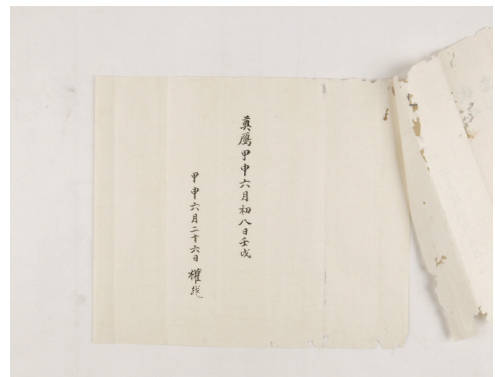 奠鴈甲申六月初八日壬戌
甲申六月二十六日 權